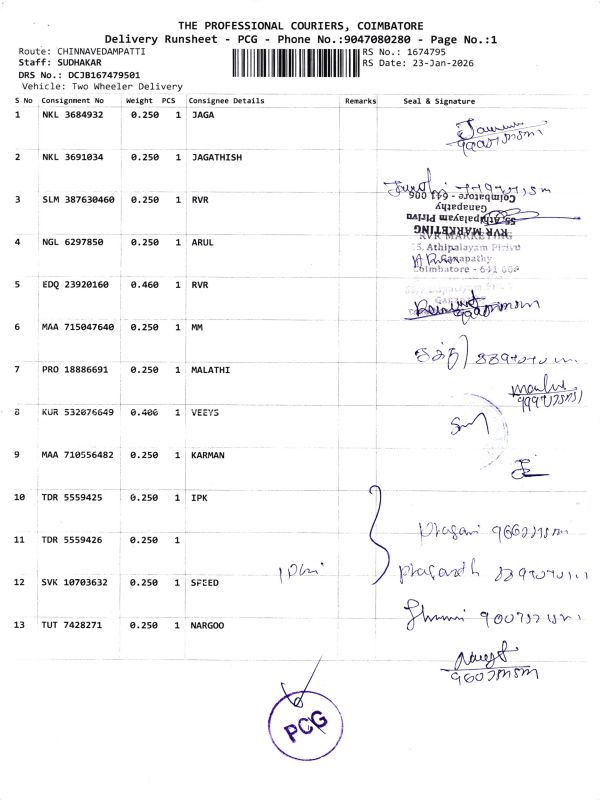 THE PROFESSIONAL COURIERS, COIMBATORE
Delivery Runsheet - PCG - Phone No.:9047080280 - Page No.:1
Route: CHINNAVEDAMPATTI RS No.: 1674795
Staff: SUDHAKAR RS Date: 23-Jan-2026
DRS No.: DCJB167479501
Vehicle: Two Wheeler Delivery
S No Consignment No Weight PCS Consignee Details Remarks Seal & Signature
1 NKL 3684932 0.250 1 JAGA
2 NKL 3691034 0.250 1 JAGATHISH
3 SLM 387630460 0.250 1 RVR
Coimbatore - 641 006
Ganapathy
55, Athipalayam Pirivu
RVR MARKETING
4 NGL 6297850 0.250 1 ARUL
RVR MARKETING
55, Athipalayam Pirivu
Ganapathy
Coimbatore - 641 006
5 EDQ 23920160 0.460 1 RVR
6 MAA 715047640 0.250 1 MM
7 PRO 18886691 0.250 1 MALATHI
8 KUR 532076649 0.406 1 VEEYS
9 MAA 710556482 0.250 1 KARMAN
10 TDR 5559425 0.250 1 IPK
11 TDR 5559426 0.250 1
12 SVK 10703632 0.250 1 SPEED
13 TUT 7428271 0.250 1 NARGOO
PCG